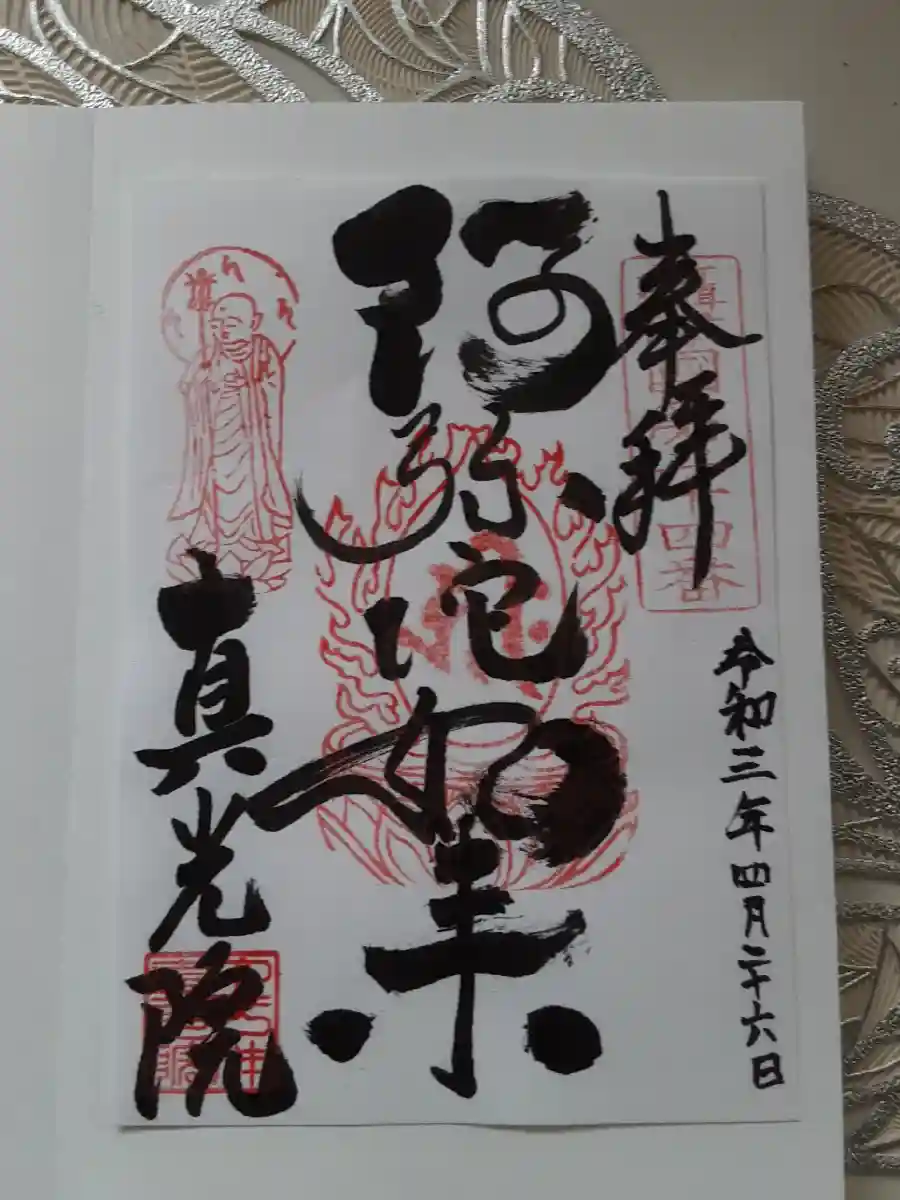 奉拝
令和三年四月二十六日
阿弥陀如来
真光院